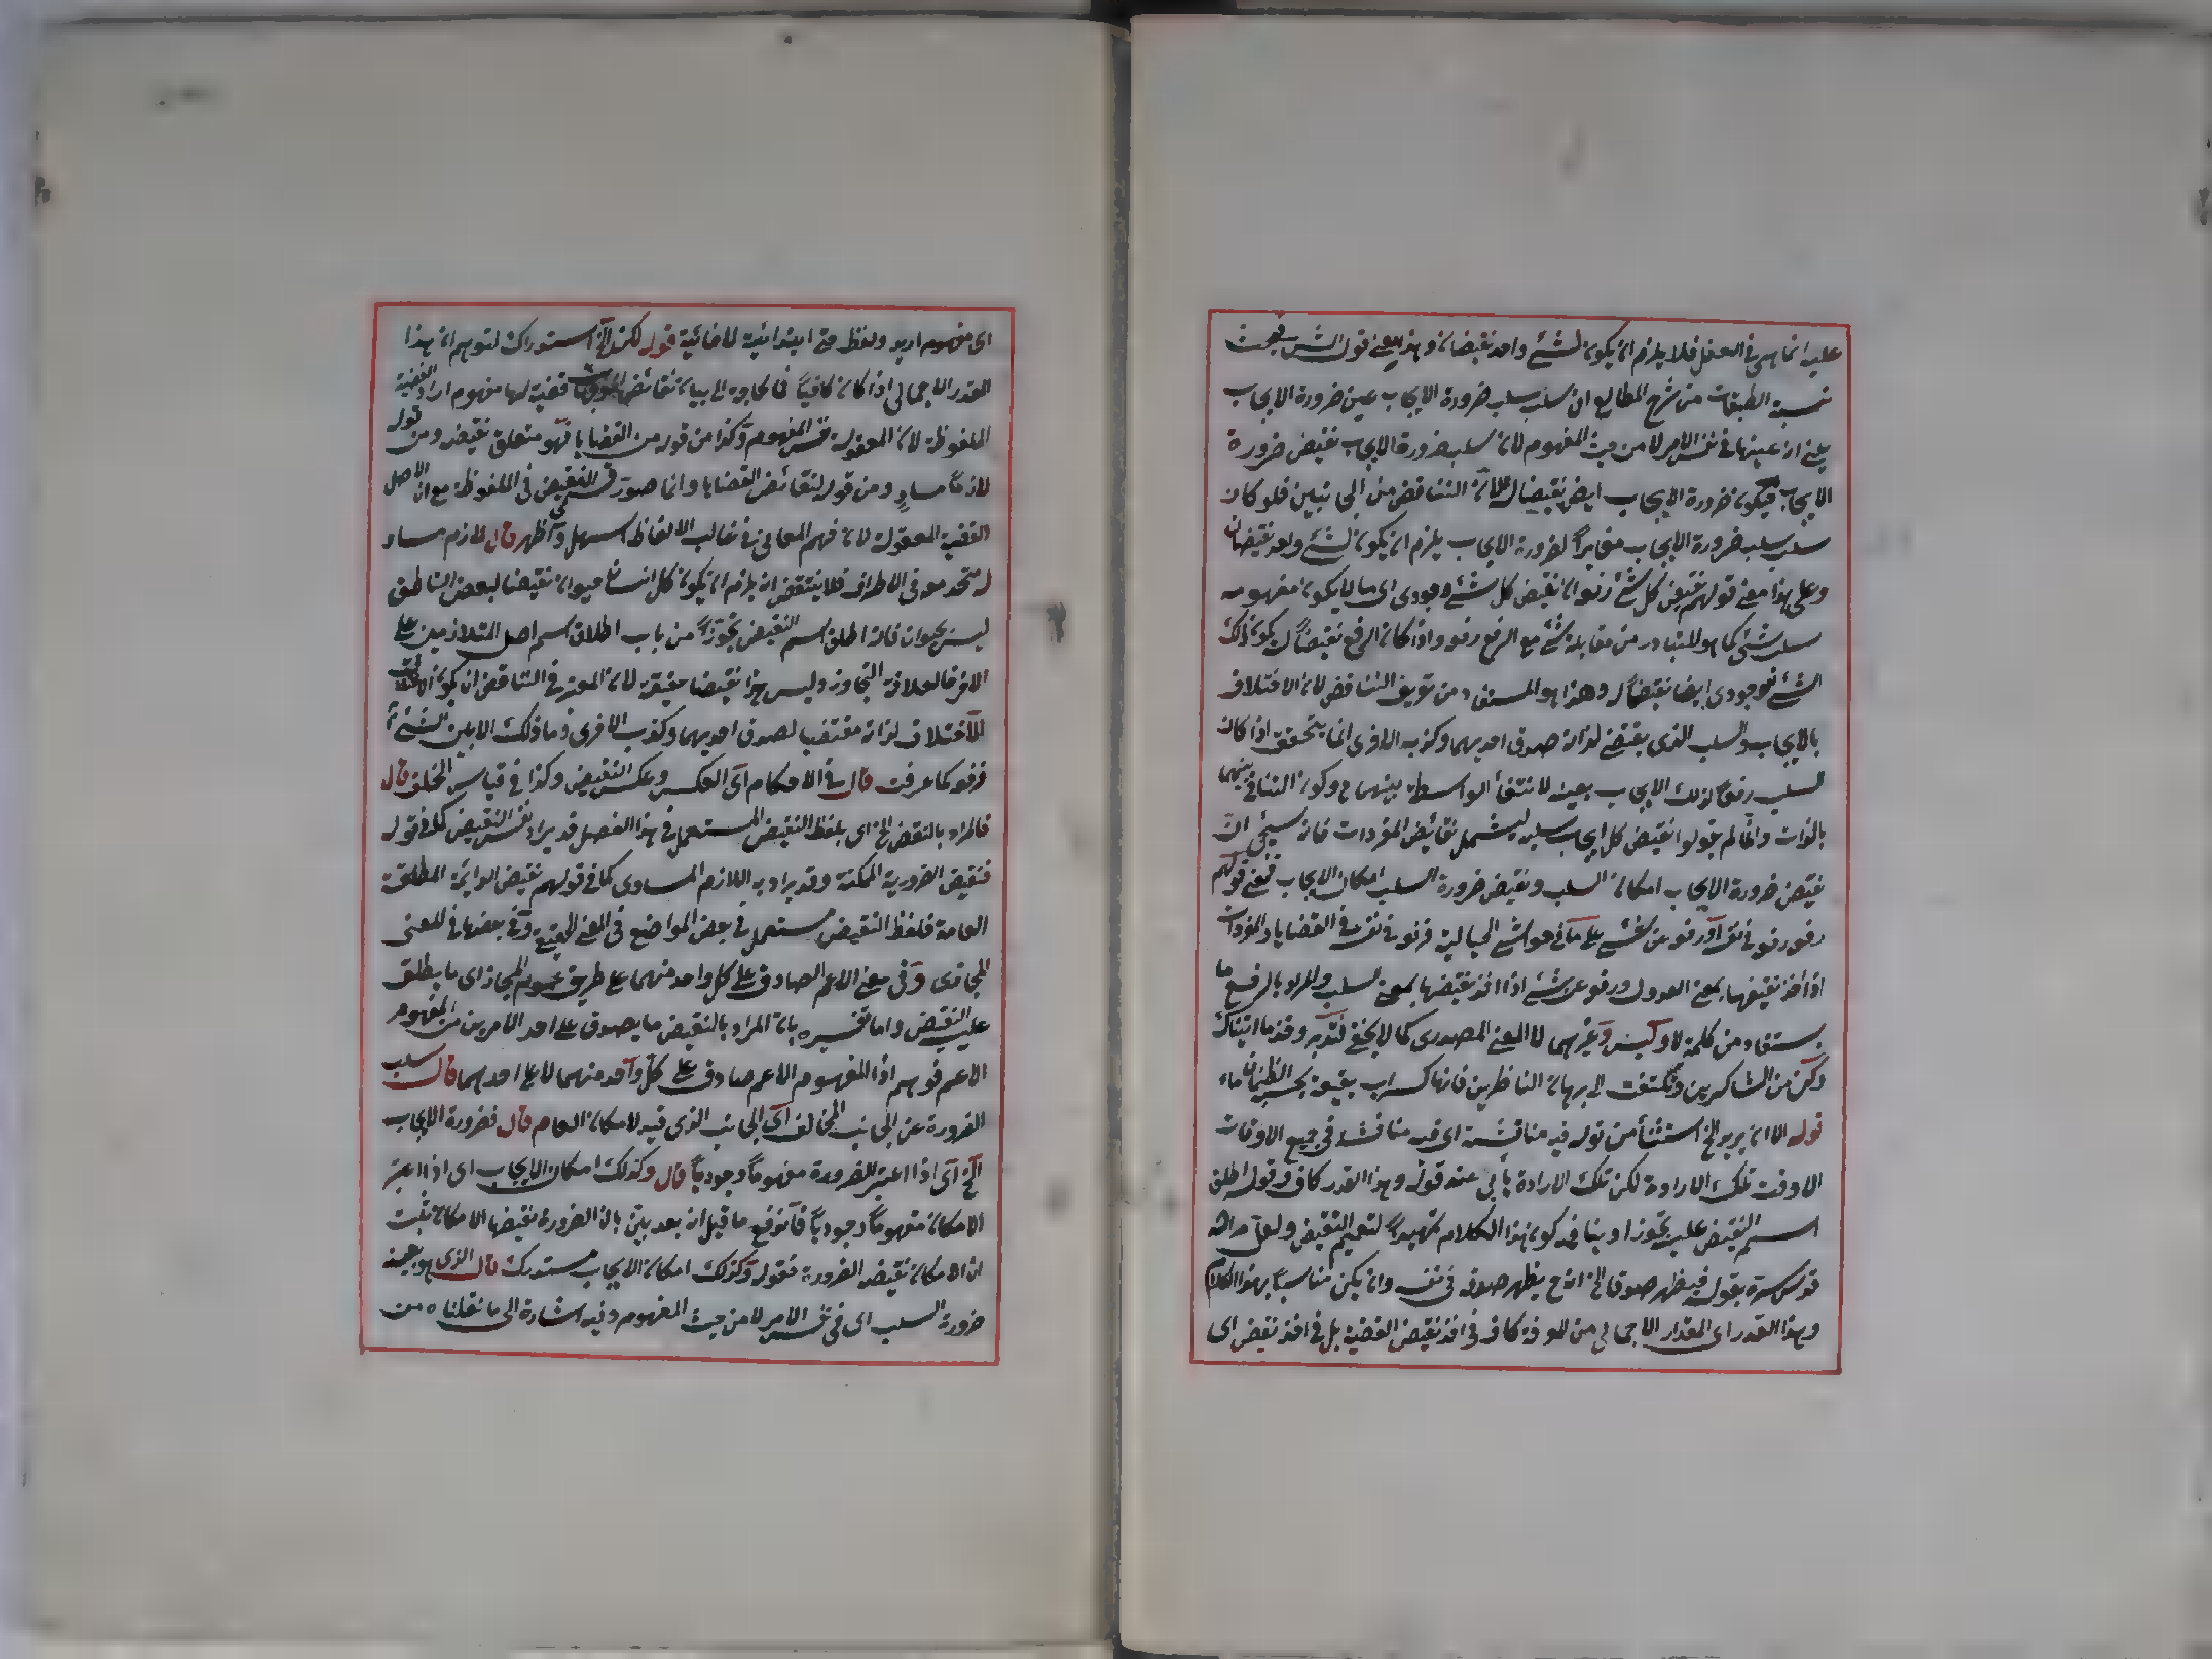 عليه انما هى فى العقل فلا يلزم ان يكون لشئ واحد نقيضان وهذا معنى قول الش فى بحث
نسبة الطبقات من شرح المطالع ان سلب سلب ضرورة الايجاب عين ضرورة الايجاب
يعنى انه عينها فى نفس الامر لا من حيث المفهوم لان سلب ضرورة الايجاب نقيض ضرورة
الايجاب فيكون ضرورة الايجاب ايضا نقيضا له لان التناقض من الجانبين فلو كان
سلب سلب ضرورة الايجاب مغايراً لضرورة الايجاب يلزم ان يكون لشئ واحد نقيضان
وعلى هذا معنى قولهم نقيض كل شئ رفعه ان نقيض كل شئ وجودى اى ما لا يكون مفهومه
سلب شئ كما هو المتبادر من مقابلة شئ مع الرفع رفعه واذا كان الرفع نقيضاً له يكون ذلك
الشئ الوجودى ايضا نقيضاً له وهذا هو المستفاد من تعريف التناقض لان الاختلاف
بالايجاب والسلب الذى يقتضى لذاته صدق احديهما وكذب الاخرى انما يتحقق اذا كان
السلب رفعاً لذلك الايجاب بعينه لانتفاء الواسطة بينهما ح وكون التنافى بينهما
بالذات وانما لم يقولوا نقيض كل ايجاب سلبه ليشمل نقائض المفردات فانه سيجئ ان
نقيض ضرورة الايجاب امكان السلب ونقيض ضرورة السلب امكان الايجاب فمعنى قولهم
رفعه رفعه فى نفسه او رفعه عن شئ على ما فى حواشى الجلالية فرفعه فى نفسه فى القضايا والمفردات
اذا اخذ نقيضها بمعنى العدول ورفعه عن شئ اذا اخذ نقيضها بمعنى السلب والمراد بالرفع ما
يستفاد من كلمة لا وليس وغيرهما لا المعنى المصدرى كما لا يخفى فتدبر وخذ ما اتيناك
وكن من الشاكرين ولا تلتفت الى برهان الناظرين فانها كسراب بقيعة يحسبه الظمآن ماء
قوله الا ان يريد الخ استثناء من قوله فيه مناقشة اى فيه مناقشة فى جميع الاوقات
الا وقت تلك الارادة لكن تلك الارادة يأبى عنه قوله وهذا القدر كاف وقوله اطلق
اسم النقيض عليه تجوزا وينافى كون هذا الكلام تمهيداً لتعميم النقيض ولعل مراده
قدس سره بقوله فيظهر صدقه الخ انه ح يظهر صدقه فى نفسه وان لم يكن مناسباً بهذا الكلام
وهذا القدر اى المقدار الاجمالى من المعرفة كاف فى اخذ نقيض القضية بل فى اخذ نقيض اى
اى مفهوم اريد ولفظ حتى ابتدائية لا غائية قوله لكن الخ استدراك لتوهم ان هذا
القدر الاجمالى اذا كان كافياً فما الحاجة الى بيان نقائض قضية لها مفهوم اراد القضية
الملفوظة لان المعقولة نفس المفهوم وكذا من قوله من القضايا فهو متعلق بنقيض ومن قوله
لازماً مساوٍ ومن قوله لنقائض القضايا وانما صور فى النقيض فى الملفوظة مع ان الاصل
القضية المعقولة لان فهم المعانى فى غالب الالفاظ اسهل واظهر قال لازم مساو
له متحد معه فى الاطراف فلا ينتقض انه يلزم ان يكون كل انسان حيوان نقيضا لبعض الناطق
ليس بحيوان فانه اطلق اسم النقيض تجوزاً من باب اطلاق اسم اصل المتلازمين على
الاخر فالعلاقة التجاوز وليس هذا نقيضا حقيقة لان المعتبر فى التناقض ان يكون
الاختلاف لذاته مقتضيا لصدق احديهما وكذب الاخرى وما ذلك الا بين الشئ
رفعه كما عرفت قال فى الاحكام اى العكس وعكس النقيض وكذا فى قياس الخلف قال
فالمراد بالنقيض الخ اى بلفظ النقيض المستعمل فى هذا الفصل قد يراد نفس النقيض كما فى قوله
فنقيض الضرورية الممكنة وقد يراد به اللازم المساوى كما فى قولهم نقيض الدائمة المطلقة
العامة فلفظ النقيض مستعمل فى بعض المواضع فى المعنى الحقيقة وفى بعضها فى المعنى
المجازى وفى معنى الاعم الصادق على كل واحد منهما على طريق عموم المجاز اى ما يطلق
عليه النقيض واما تفسيره بان المراد بالنقيض ما يصدق على احد الامرين من المفهوم
الاعم فوهم اذا المفهوم الاعم صادق على كل واحد منهما لا على احدهما قال سلب
الضرورة عن الجانب المخالف اى الجانب الذى قيد الامكان العام قال فضرورة الايجاب
الخ اى اذا اعتبر الضرورة مفهوماً وجودياً قال وكذلك امكان الايجاب اى اذا اعتبر
الامكان مفهوماً وجودياً فاندفع ما قيل انه بعد بيّن بان الضرورة نقيضها الامكان ثبت
ان الامكان نقيضه الضرورة فقوله وكذلك امكان الايجاب مستدرك قال الذى هو بعينه
ضرورة السلب اى فى نفس الامر لا من حيث المفهوم وفيه اشارة الى ما نقلناه من